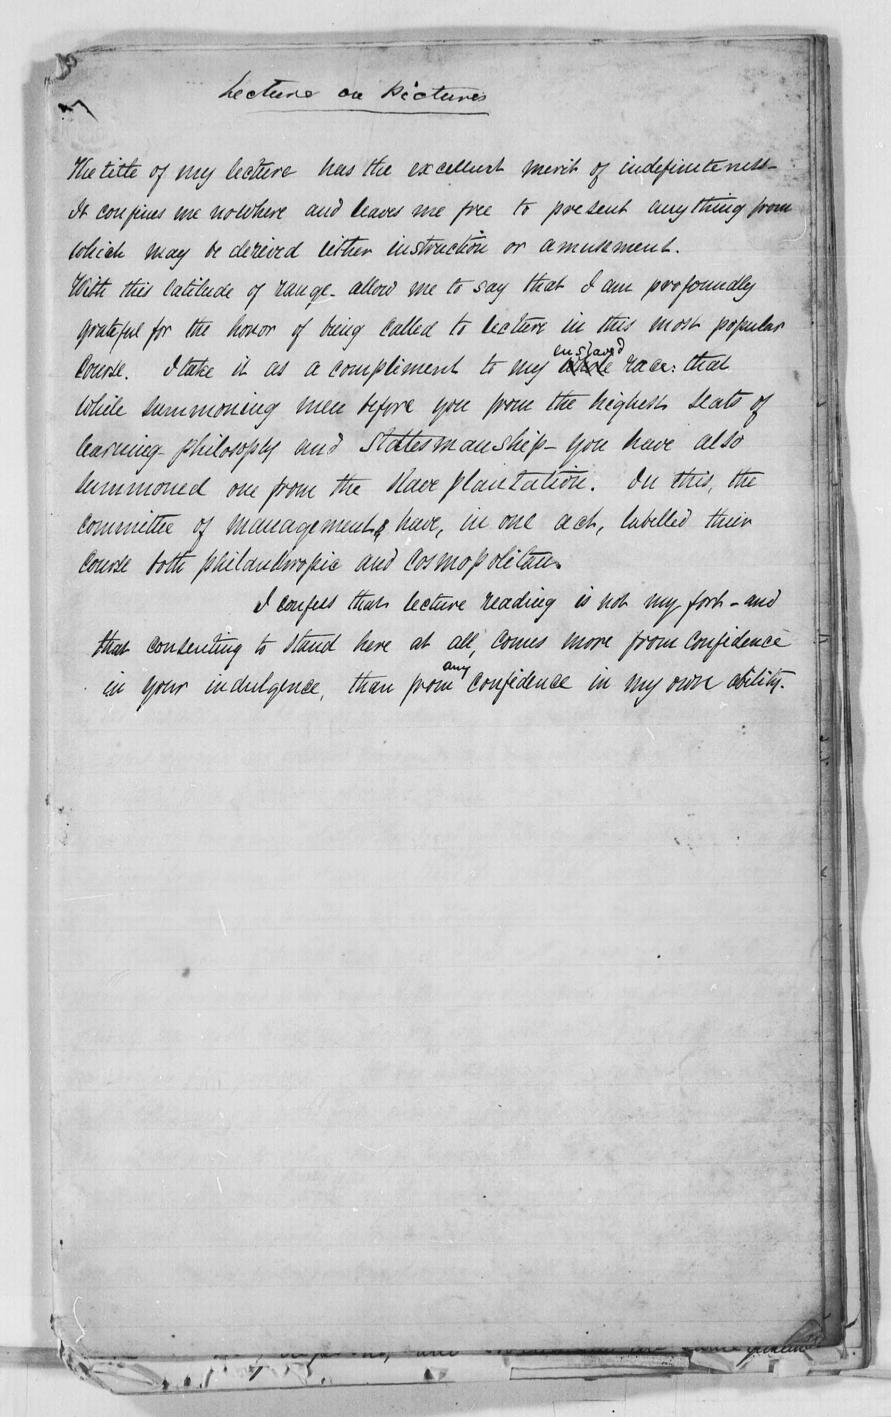 Lecture on Pictures
The title of my lecture has the excellent merit of indefiniteness-
It confines me nowhere and leaves me free to present anything from
which may be derived either instruction or amusement.
With this latitude of range- allow me to say that I am profoundly
grateful for the honor of being called to lecture in this most popular
Course. I take it as a compliment to my enslaved race: that
while summoning men before you from the highest seats of
learning- philosophy and Statesmanship- you have also
summoned one from the slave plantation. In this, the
committee of management have, in one act, labelled their
Course both philanthropic and Cosmopolitan.
I confess that lecture reading is not my fort - and
that consenting to stand here at all, comes more from confidence
in your indulgence, than from any confidence in my own ability.